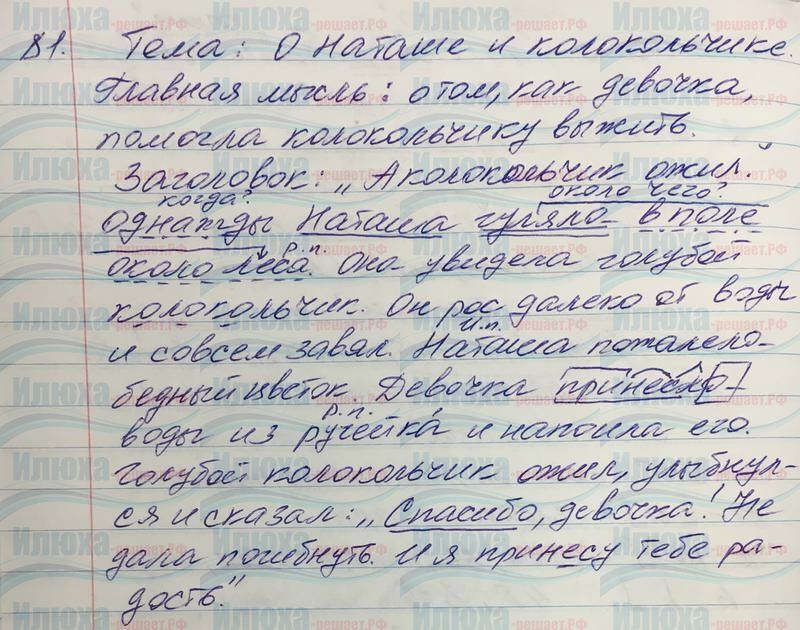 81. Тема: О Наташе и колокольчике.
Главная мысль: о том, как девочка,
помогла колокольчику выжить.
Заголовок: „А колокольчик ожил.
когда? около чего?
однажды Наташа гуляла в поле
р.п.
около леса. Она увидела голубой
колокольчик. Он рос далеко от воды
и совсем завял. Наташа пожалела
и.п.
бедный цветок. Девочка принесла
р.п.
воды из ручейка и напоила его.
Голубой колокольчик ожил, улыбнул-
ся и сказал: „Спасибо, девочка! Не
дала погибнуть. И я принесу тебе ра-
дость."
Илюха-решает.РФ